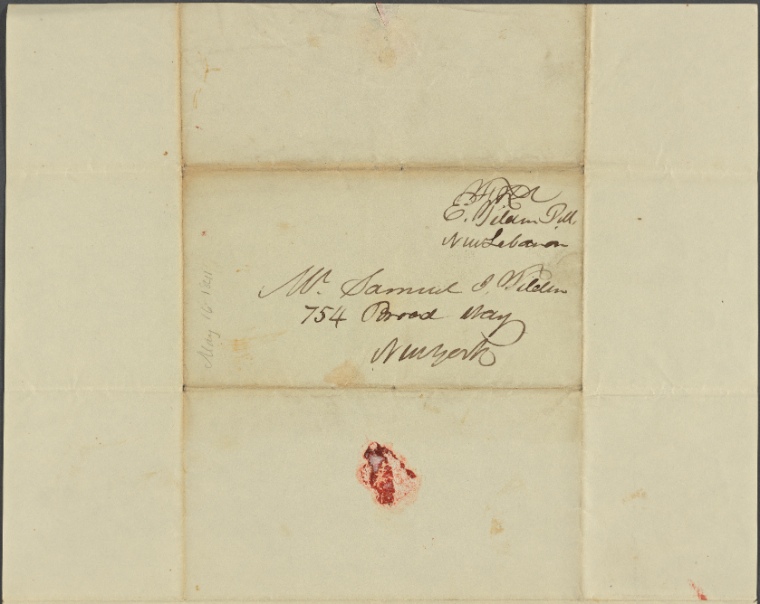 FREE
E. Tilden P.M.
New Lebanon
Mr. Samuel J. Tilden
754 Broad Way
New York
May 16 1841